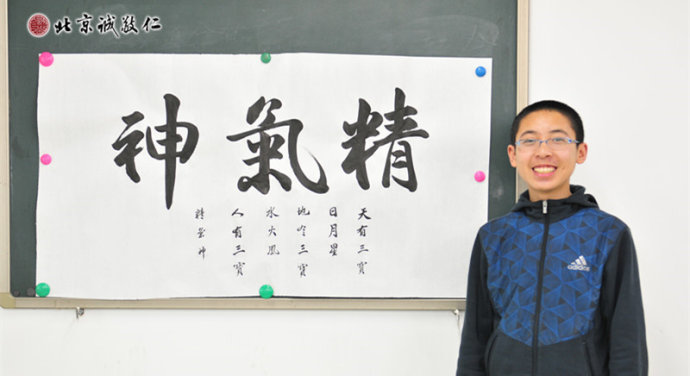 北京诚敬仁
精氣神
天有三寶
日月星
地有三寶
水火風
人有三寶
精氣神
adidas